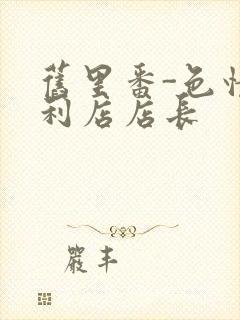 舊里番-色性
利店店長
嚴丰